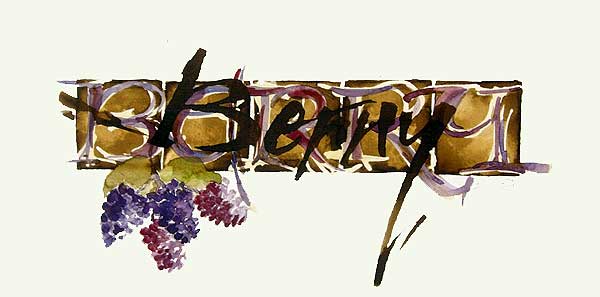 BERRY
Berry